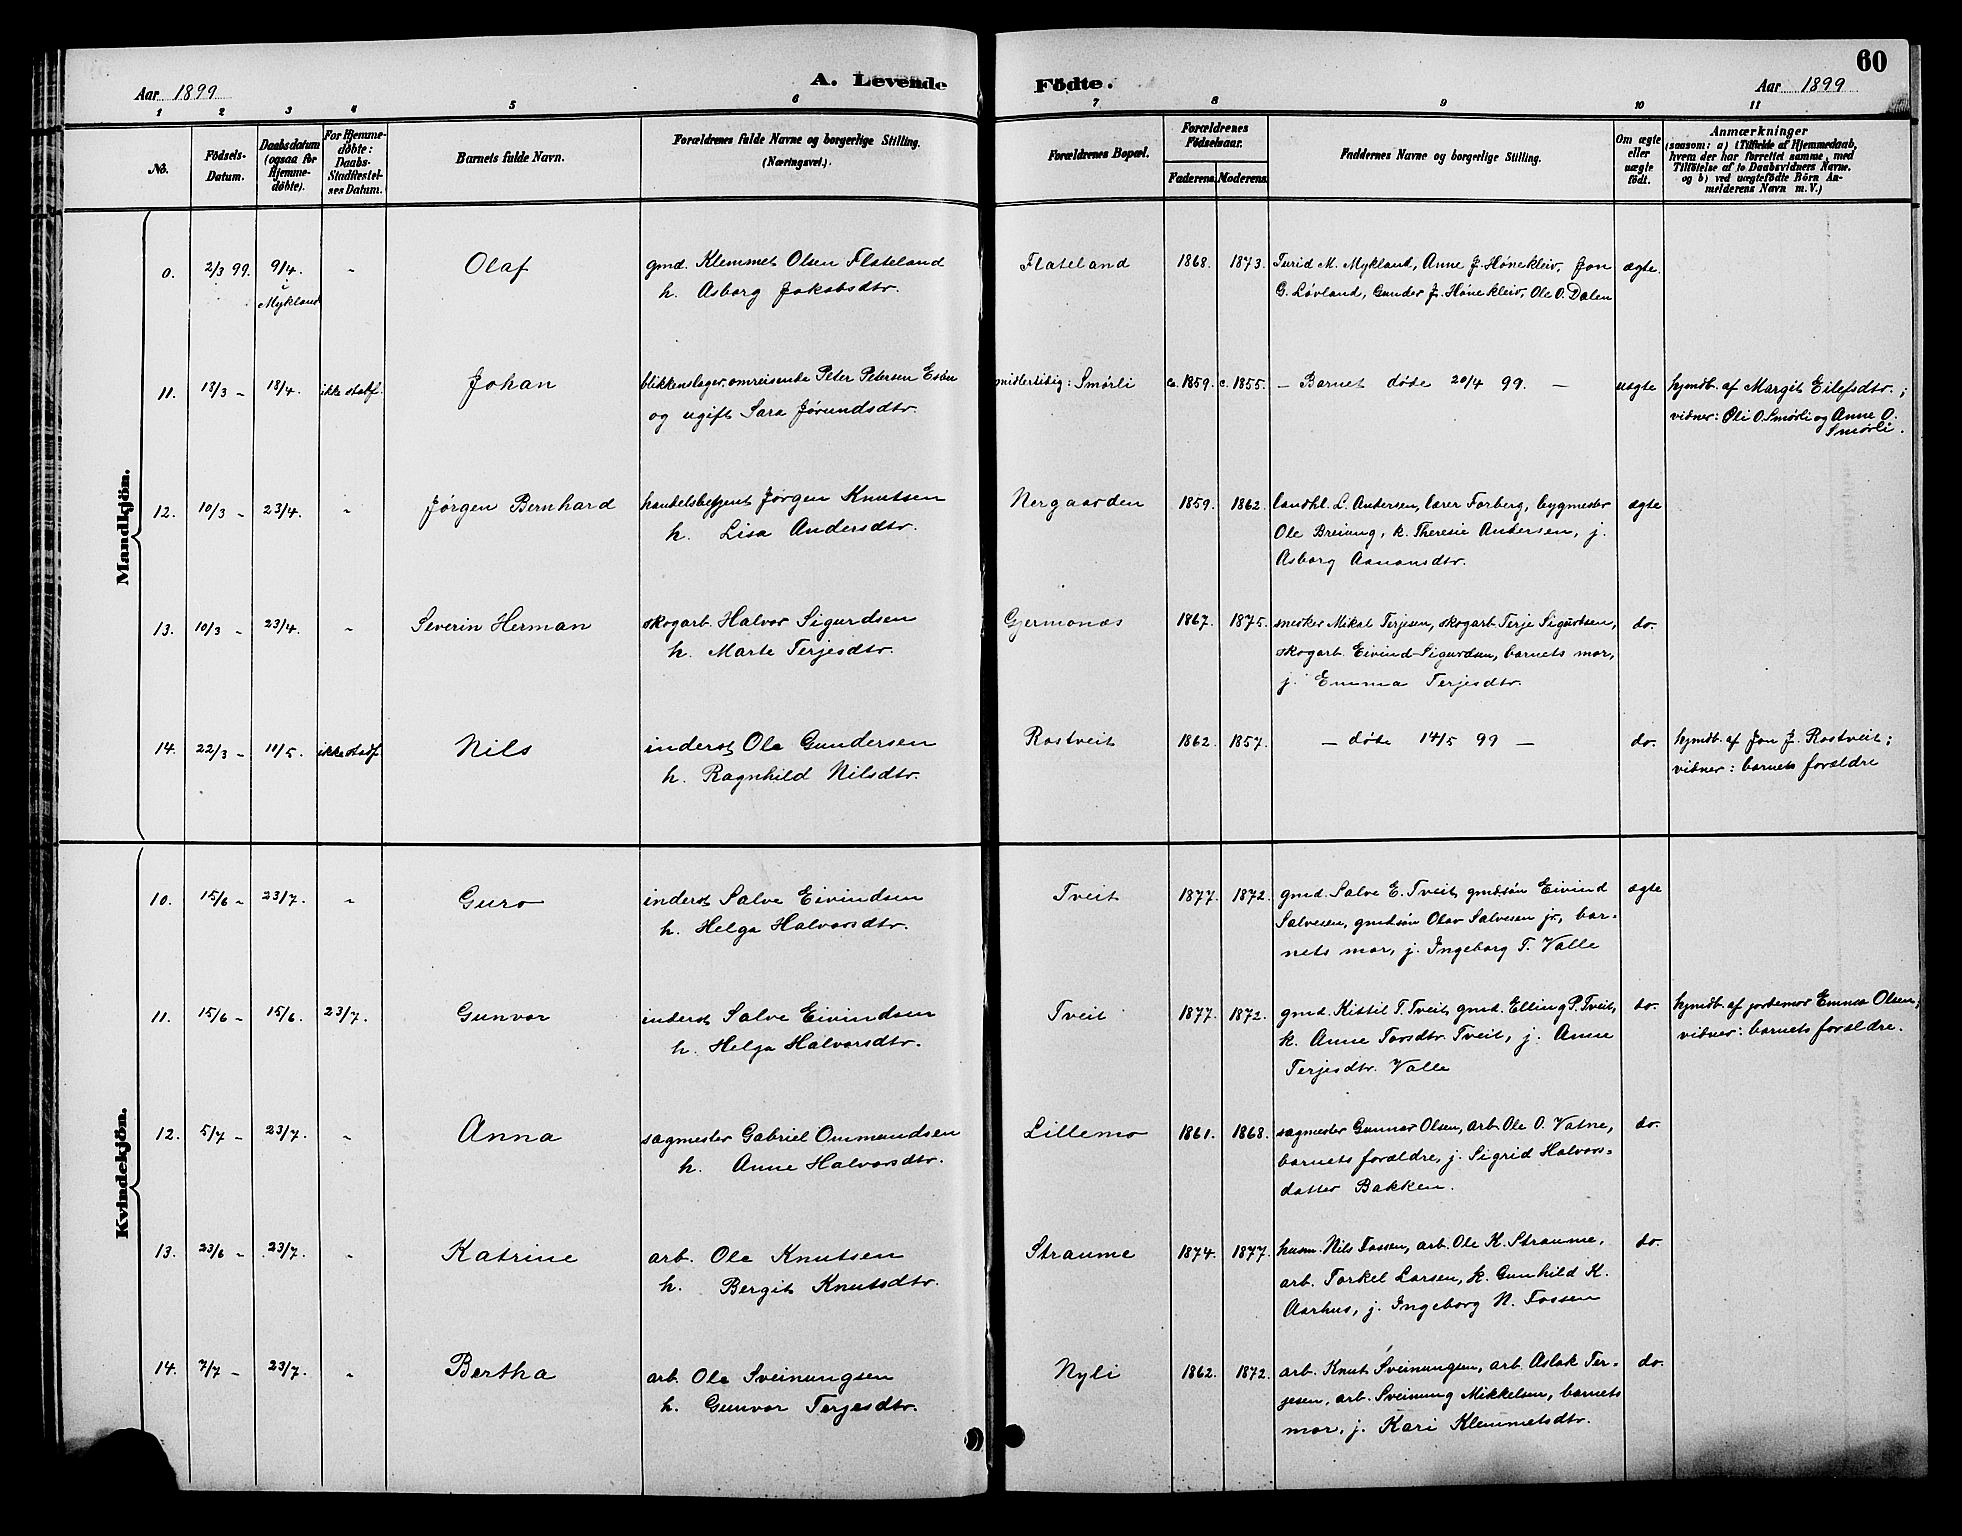 60
Aar 1899
A. Levende
Födte.
Aar 1899
1 2 3 4 5 6 7 8 9 10 11
No.
Födsels-
Datum.
Daabsdatum
(ogsaa for
Hjemme-
døbte).
For Hjemme-
døbte:
Daabs-
Stadfæstel-
ses Datum.
Barnets fulde Navn.
Forældrenes fulde Navne og borgerlige Stilling.
(Næringsvei.)
Forældrenes Bopæl.
Forældrenes
Födselsaar.
Faderens. Moderens.
Faddernes Navne og borgerlige Stilling.
Om ægte
eller
uægte
födt.
Anmærkninger
(saasom: a) i Tilfælde af Hjemmedaab,
hvem der har forrettet samme, med
Tilföielse af to Daabsvidners Navne.
og b) ved uægtefödte Börn An-
melderens Navn m. V.)
Mandkjön.
0. 2/3 99. 9/4. „ Olaf gmd. Klemmet Olsen Flateland Flateland 1868. 1873. Turid M. Mykland, Anne J. Hønekleiv, Jon ægte.
i
Mykland h. Asborg Jakobsdtr. G. Løvland, Gunder J. Hønekleiv, Ole O. Dalen
11. 18/3 – 18/4. ikke stadf. Johan blikkenslager, omreisende Peter Petersen midlertidig: Smørli ca. 1859. c. 1855. – Barnet døde 20/4 99. – uægte hjmdb. af Margit Eilefsdtr.;
og ugift Sara Jørundsdtr. vidner: Oli O. Smørli og Anne O.
Smørli.
12. 10/3 – 23/4. „ Jørgen Bernhard handelsbetjent Jørgen Knutsen Nergaarden 1859. 1862. landhl. L. Andersen, lærer Forberg, bygmester ægte
h. Lisa Andersdtr. Ole Breiung, k. Theresie Andersen, j.
Asborg Aanonsdtr.
13. 10/3 – 23/4. „ Severin Herman skogarb. Halvor Sigurdsen Gjermonæs 1867. 1875. snedker Mikal Terjesen, skogarb. Terje Sigurdsen, do.
h. Marte Terjesdtr. skogarb. Eivind Sigurdsen, barnets mor,
j. Emma Terjesdtr.
14. 22/3 – 10/5. ikke stadf. Nils inderst Ole Gundersen Rostveit 1862. 1857. – døde 14/5 99 – do. hjmdb. af Jon J. Rostveit;
h. Ragnhild Nilsdtr. vidner: barnets forældre
Kvindekjön.
10. 15/6 – 23/7. „ Guro inderst Salve Eivindsen Tveit 1877. 1872. gmd. Salve E. Tveit, gmdsøn Eivind ægte
h. Helga Halvorsdtr. Salvesen, gmdsøn Olav Salvesen jr., bar-
nets mor, j. Ingeborg T. Valle
11. 15/6 – 15/6. 23/7. Gunvor inderst Salve Eivindsen Tveit 1877. 1872. gmd. Kittil T. Tveit, gmd. Elling P. Tveit, do. hjmdb. af jordemor Emma Olsen;
h. Helga Halvorsdtr. k. Anne Torsdtr. Tveit, j. Anne vidner: barnets forældre.
Terjesdtr. Valle
12. 5/7 – 23/7. „ Anna sagmester Gabriel Ommundsen Lillemo 1861. 1868. sagmester Gunnar Olsen, arb. Ole O. Vatne, do.
h. Anne Halvorsdtr. barnets forældre, j. Sigrid Halvors-
datter Bakken.
13. 23/6 – 23/7. „ Katrine arb. Ole Knutsen Straume 1874. 1877. husm. Nils Fossen, arb. Ole K. Straume, do.
h. Bergit Knutsdtr. arb. Torkel Larsen, k. Gunhild K.
Aarhus, j. Ingeborg N. Fossen
14. 7/7 – 23/7. „ Bertha arb. Ole Sveinungsen Nyli 1862. 1872. arb. Knut Sveinungsen, arb. Aslak Ter- do.
h. Gunvor Terjesdtr. jesen, arb. Sveinung Mikkelsen, barnets
mor, j. Kari Klemmetsdtr.